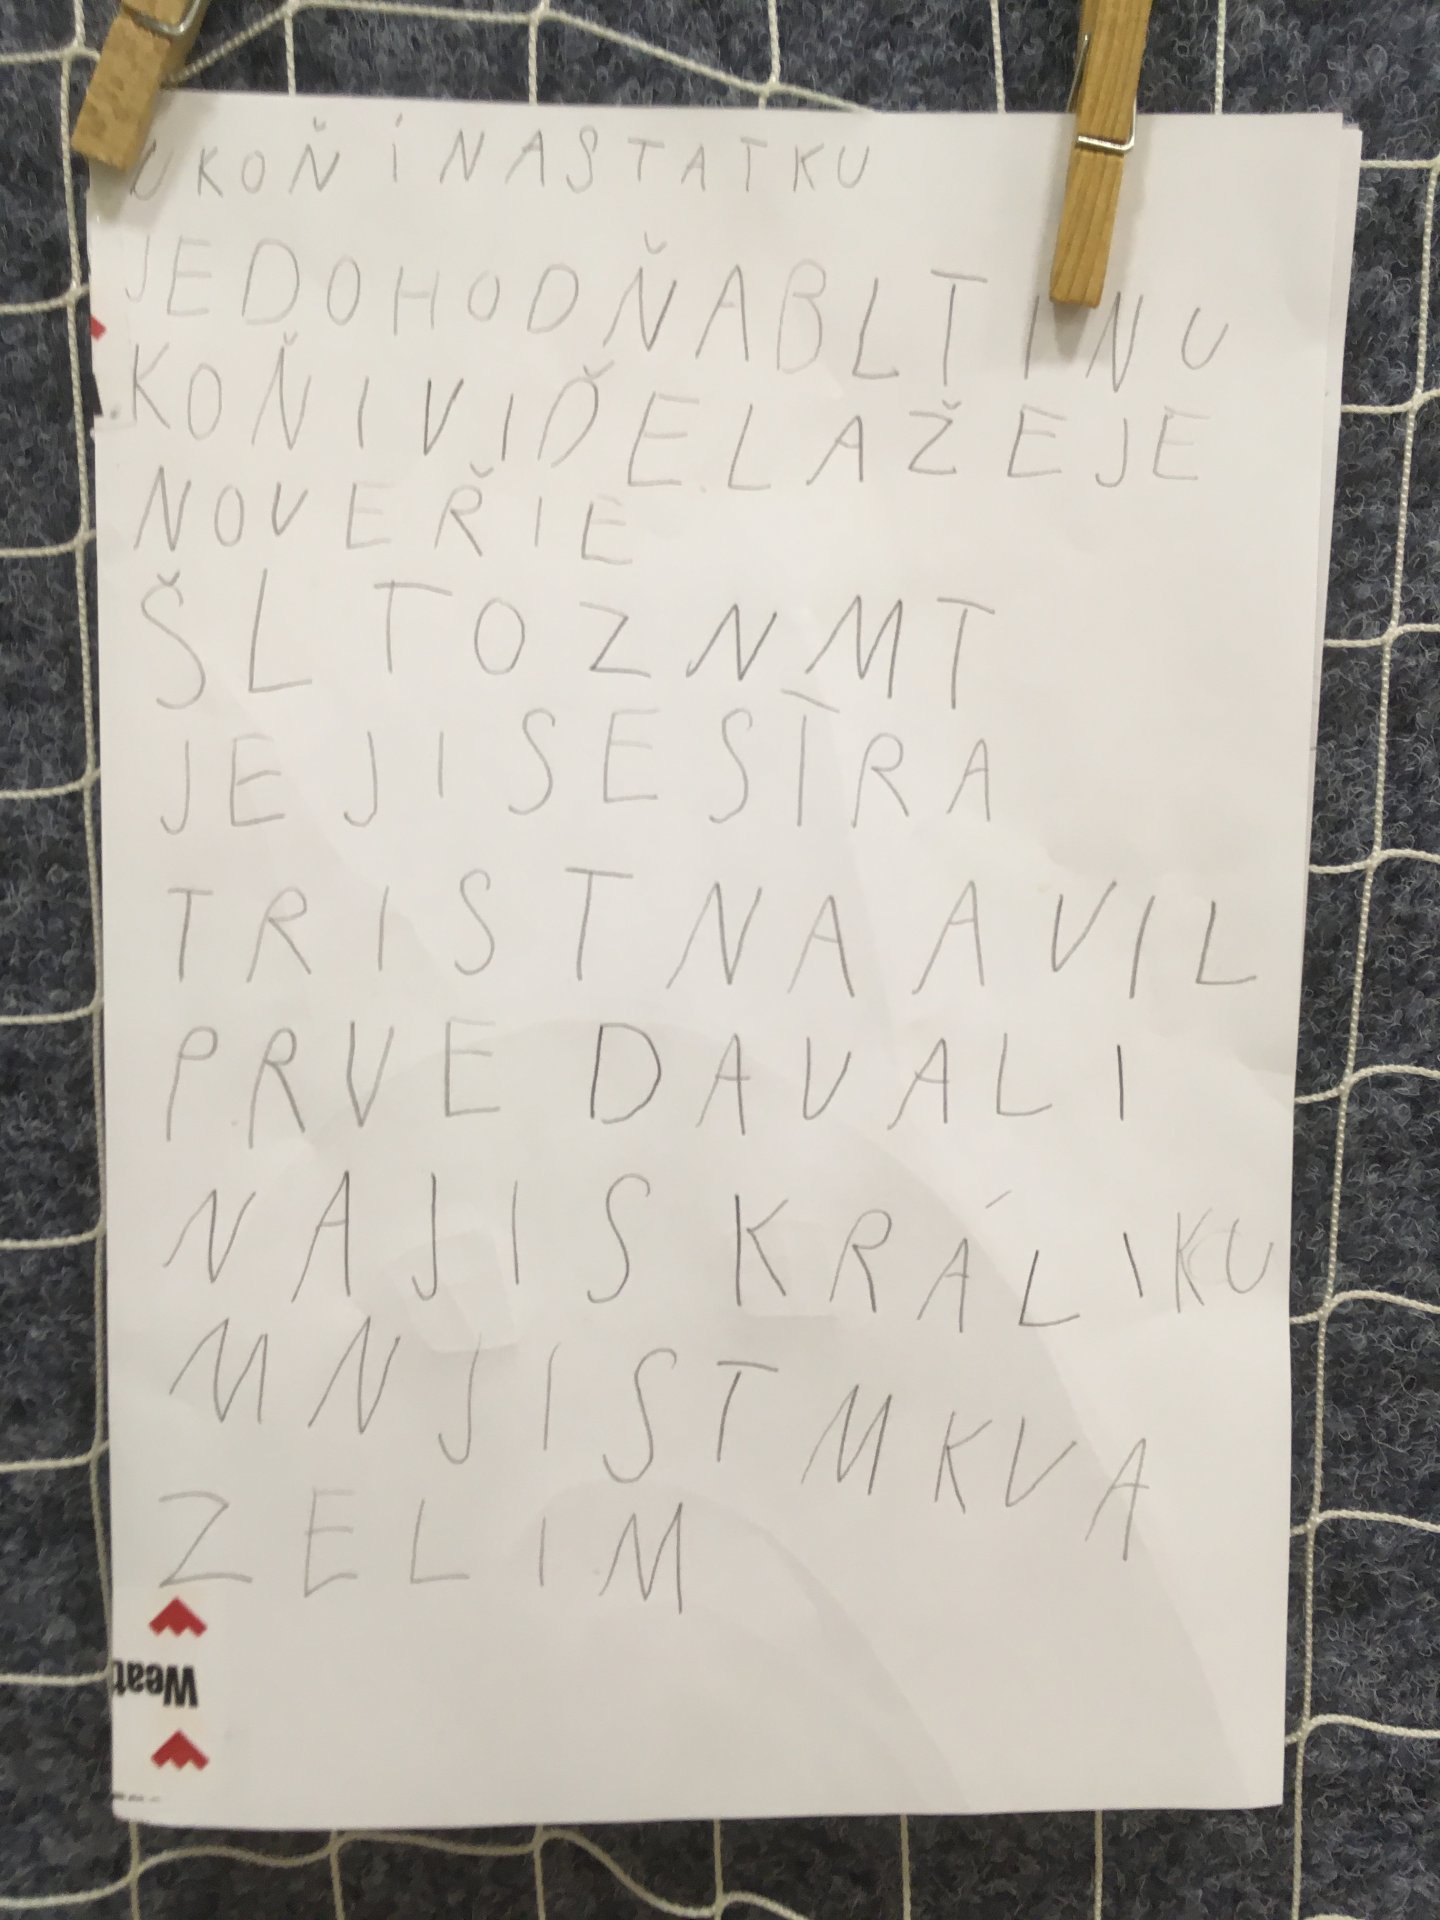 UKOŇÍNASTATKU
JEDOHODŇABLTINU
KOŇIVIĎELAŽEJE
NOVEŘIE
ŠLTOZNMT
JEJISESTRA
TRISTNAAVIL
PRVEDAVALI
NAJISKRÁLIKU
MNJISTMKVA
ZELIM
Weat